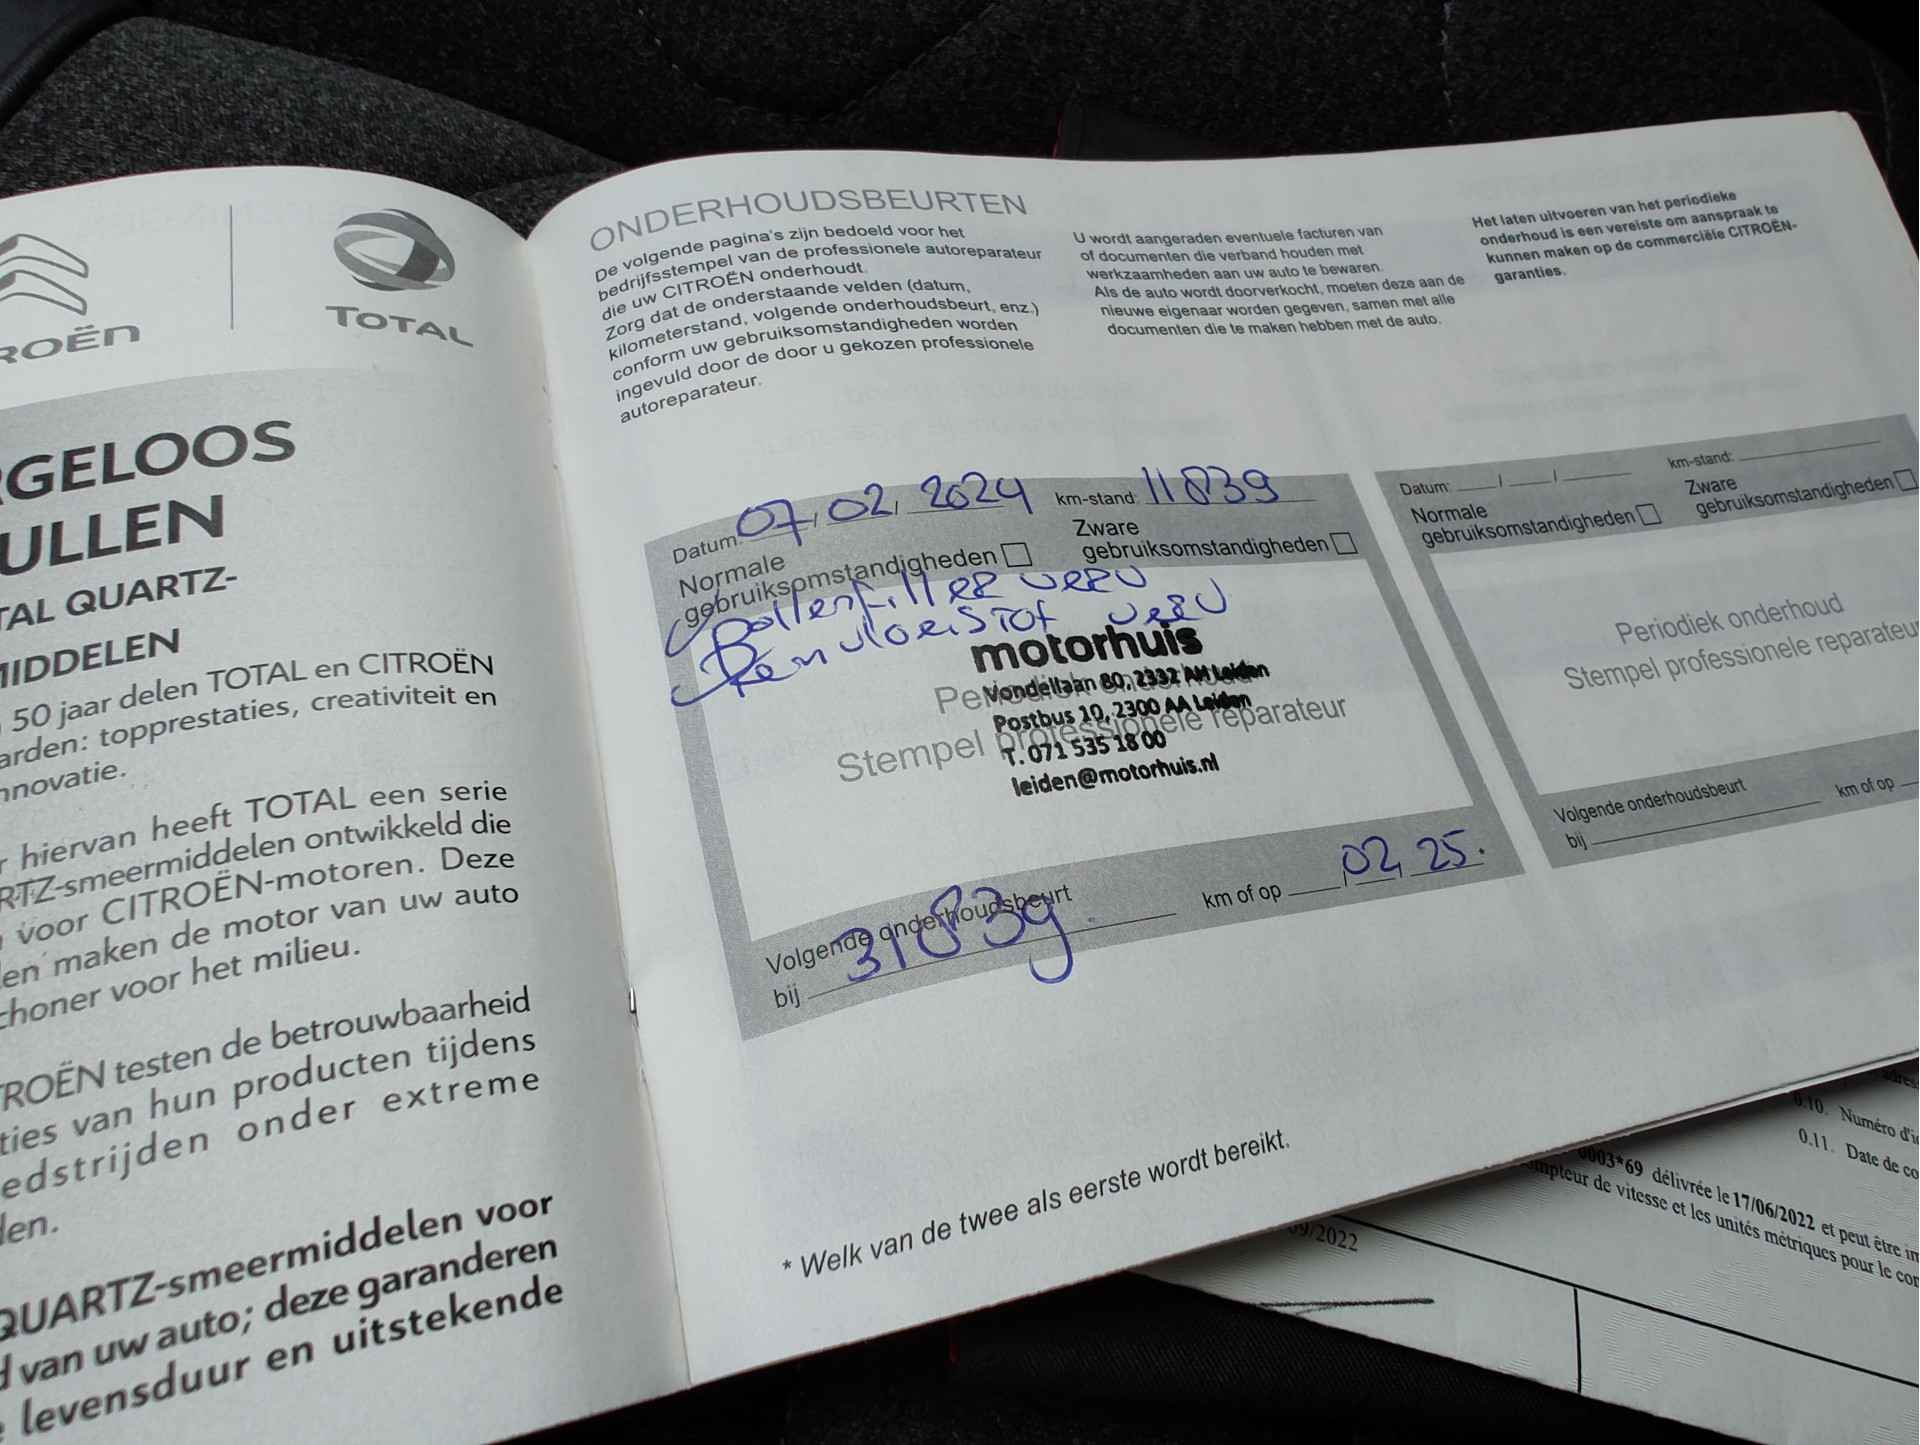 TOTAL
RGELOOS
ULLEN
TAL QUARTZ-
MIDDELEN
50 jaar delen TOTAL en CITROËN
arden: topprestaties, creativiteit en
nnovatie.
r hiervan heeft TOTAL een serie
RTZ-smeermiddelen ontwikkeld die
voor CITROËN-motoren. Deze
len maken de motor van uw auto
choner voor het milieu.
TROËN testen de betrouwbaarheid
ties van hun producten tijdens
edstrijden onder extreme
den.
QUARTZ-smeermiddelen voor
d van uw auto; deze garanderen
e levensduur en uitstekende
ONDERHOUDSBEURTEN
De volgende pagina's zijn bedoeld voor het
bedrijfsstempel van de professionele autoreparateur
die uw CITROËN onderhoudt.
Zorg dat de onderstaande velden (datum,
kilometerstand, volgende onderhoudsbeurt, enz.)
conform uw gebruiksomstandigheden worden
ingevuld door de door u gekozen professionele
autoreparateur.
U wordt aangeraden eventuele facturen van
of documenten die verband houden met
werkzaamheden aan uw auto te bewaren.
Als de auto wordt doorverkocht, moeten deze aan de
nieuwe eigenaar worden gegeven, samen met alle
documenten die te maken hebben met de auto.
Het laten uitvoeren van het periodieke
onderhoud is een vereiste om aanspraak te
kunnen maken op de commerciële CITROËN-
garanties.
Datum: 07 / 02 / 2024 km-stand: 11839
Normale
gebruiksomstandigheden
Zware
gebruiksomstandigheden
Pollenfilter verv
Remvloeistof verv
motorhuis
Vondellaan 80, 2332 AH Leiden
Postbus 10, 2300 AA Leiden
T. 071 535 18 00
leiden@motorhuis.nl
Periodiek onderhoud
Stempel professionele reparateur
Volgende onderhoudsbeurt
bij 31839 km of op / 02 / 25.
Datum: / / km-stand:
Normale
gebruiksomstandigheden
Zware
gebruiksomstandigheden
Periodiek onderhoud
Stempel professionele reparateu
Volgende onderhoudsbeurt
bij km of op
* Welk van de twee als eerste wordt bereikt.
0.10. Numéro d'i
0.11. Date de co
0003*69 délivrée le 17/06/2022 et peut être im
mpteur de vitesse et les unités métriques pour le con
09/2022